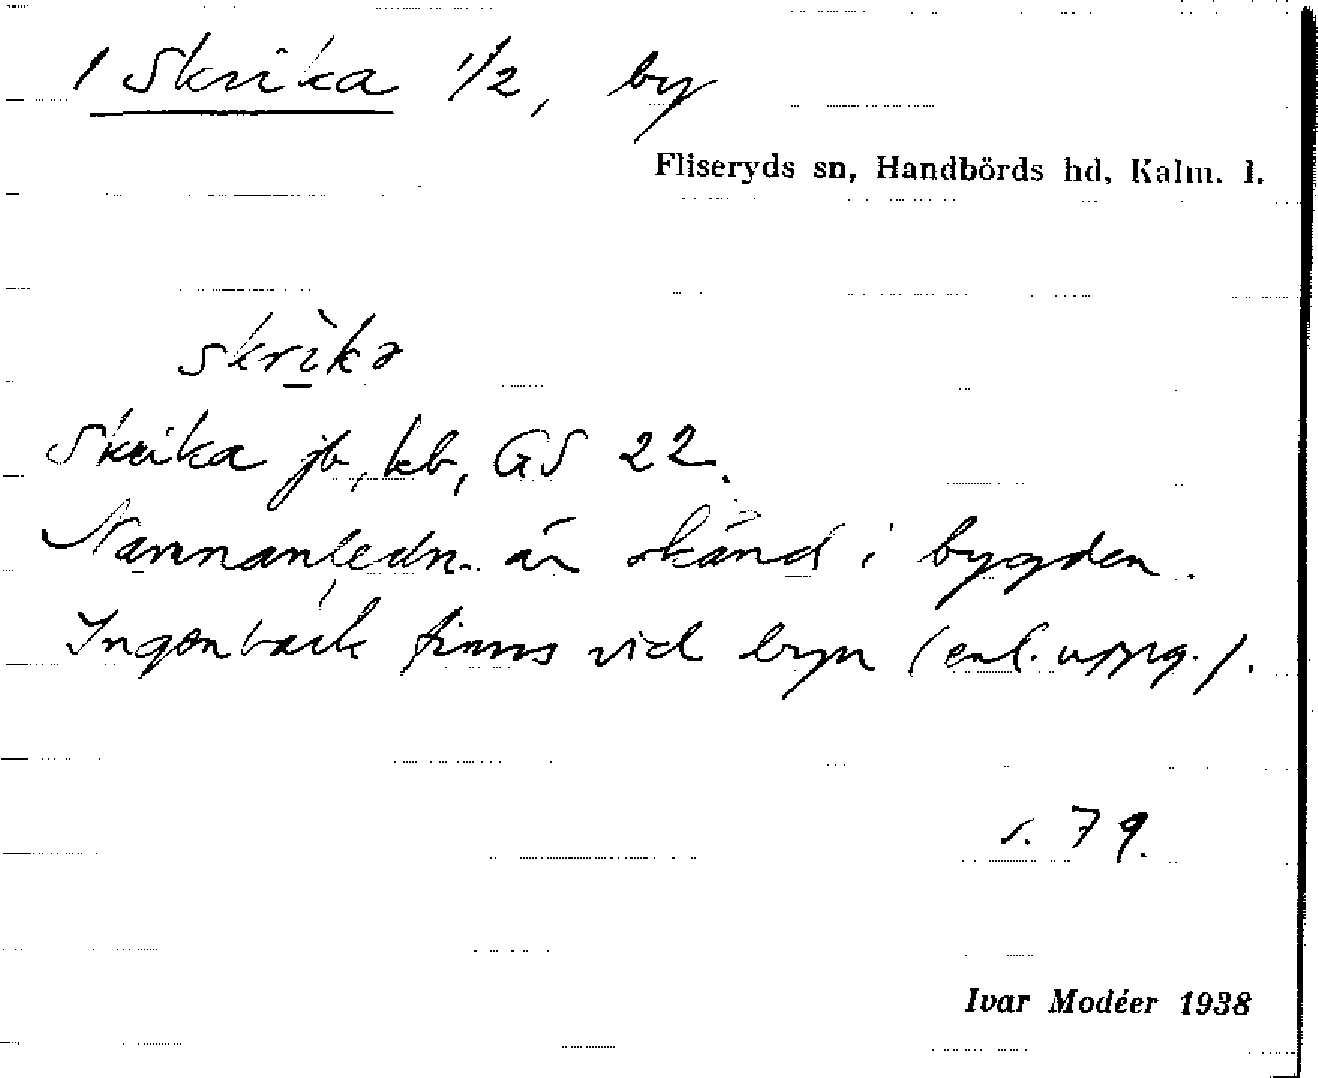 1 Skrika 1/2, by
Fliseryds sn, Handbörds hd, Kalm. l.
skrì̲kə
Skrika jb, kb, GS 22.
Namnanledn. är okänd i bygden.
Ingen bäck finns vid byn (enl. uppg.).
s. 79.
Ivar Modéer 1938